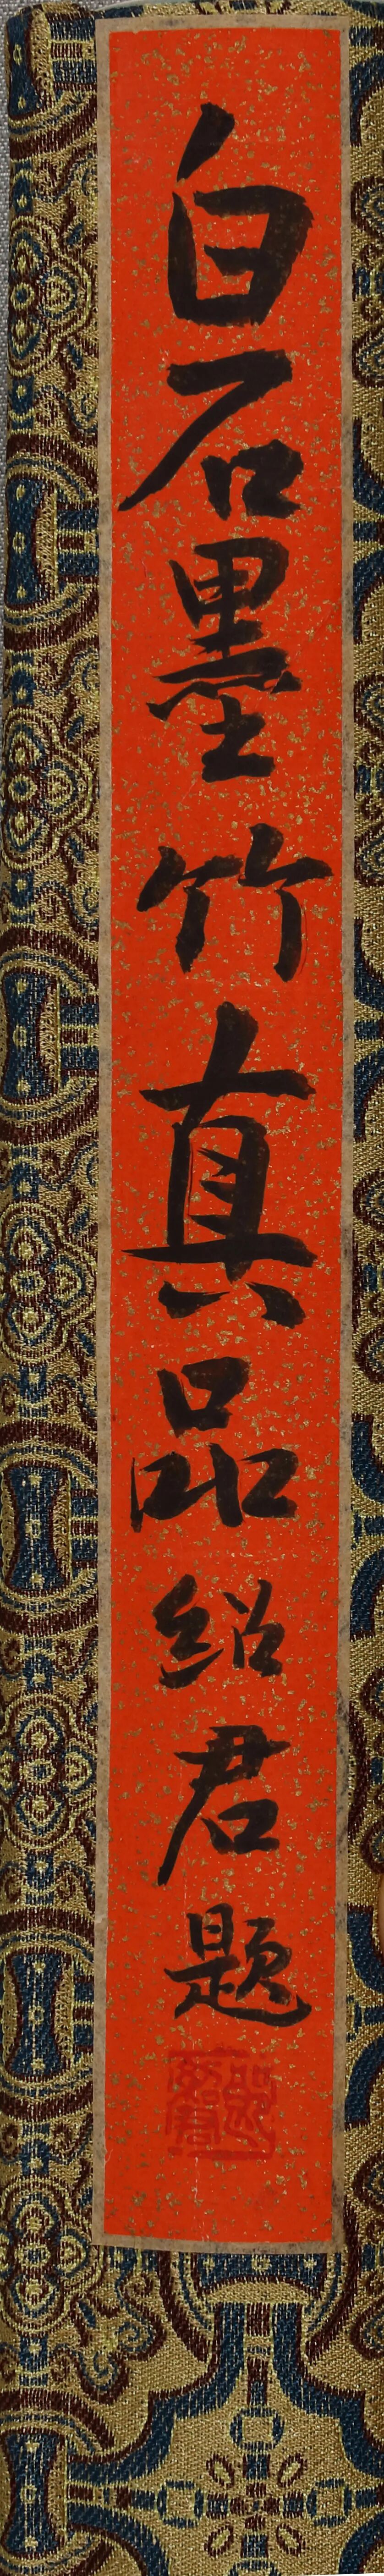 白石墨竹真品绍君題